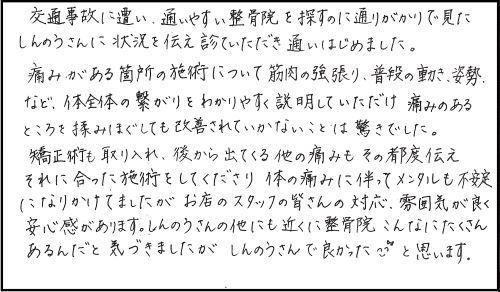 交通事故に遭い、通いやすい整骨院を探すのに通りがかりで見た
しんのうさんに状況を伝え診ていただき通いはじめました。
痛みがある箇所の施術について筋肉の強張り、普段の動き、姿勢、
など、体全体の繋がりをわかりやすく説明していただけ 痛みのある
ところを揉みほぐしても改善されていかないことは驚きでした。
矯正術も取り入れ、後から出てくる他の痛みもその都度伝え
それに合った施術をしてくださり 体の痛みに伴ってメンタルも不安定
になりかけてましたが お店のスタッフの皆さんの対応、雰囲気が良く
安心感があります。しんのうさんの他にも近くに整骨院 こんなにたくさん
あるんだと気づきましたが しんのうさんで良かった と思います。